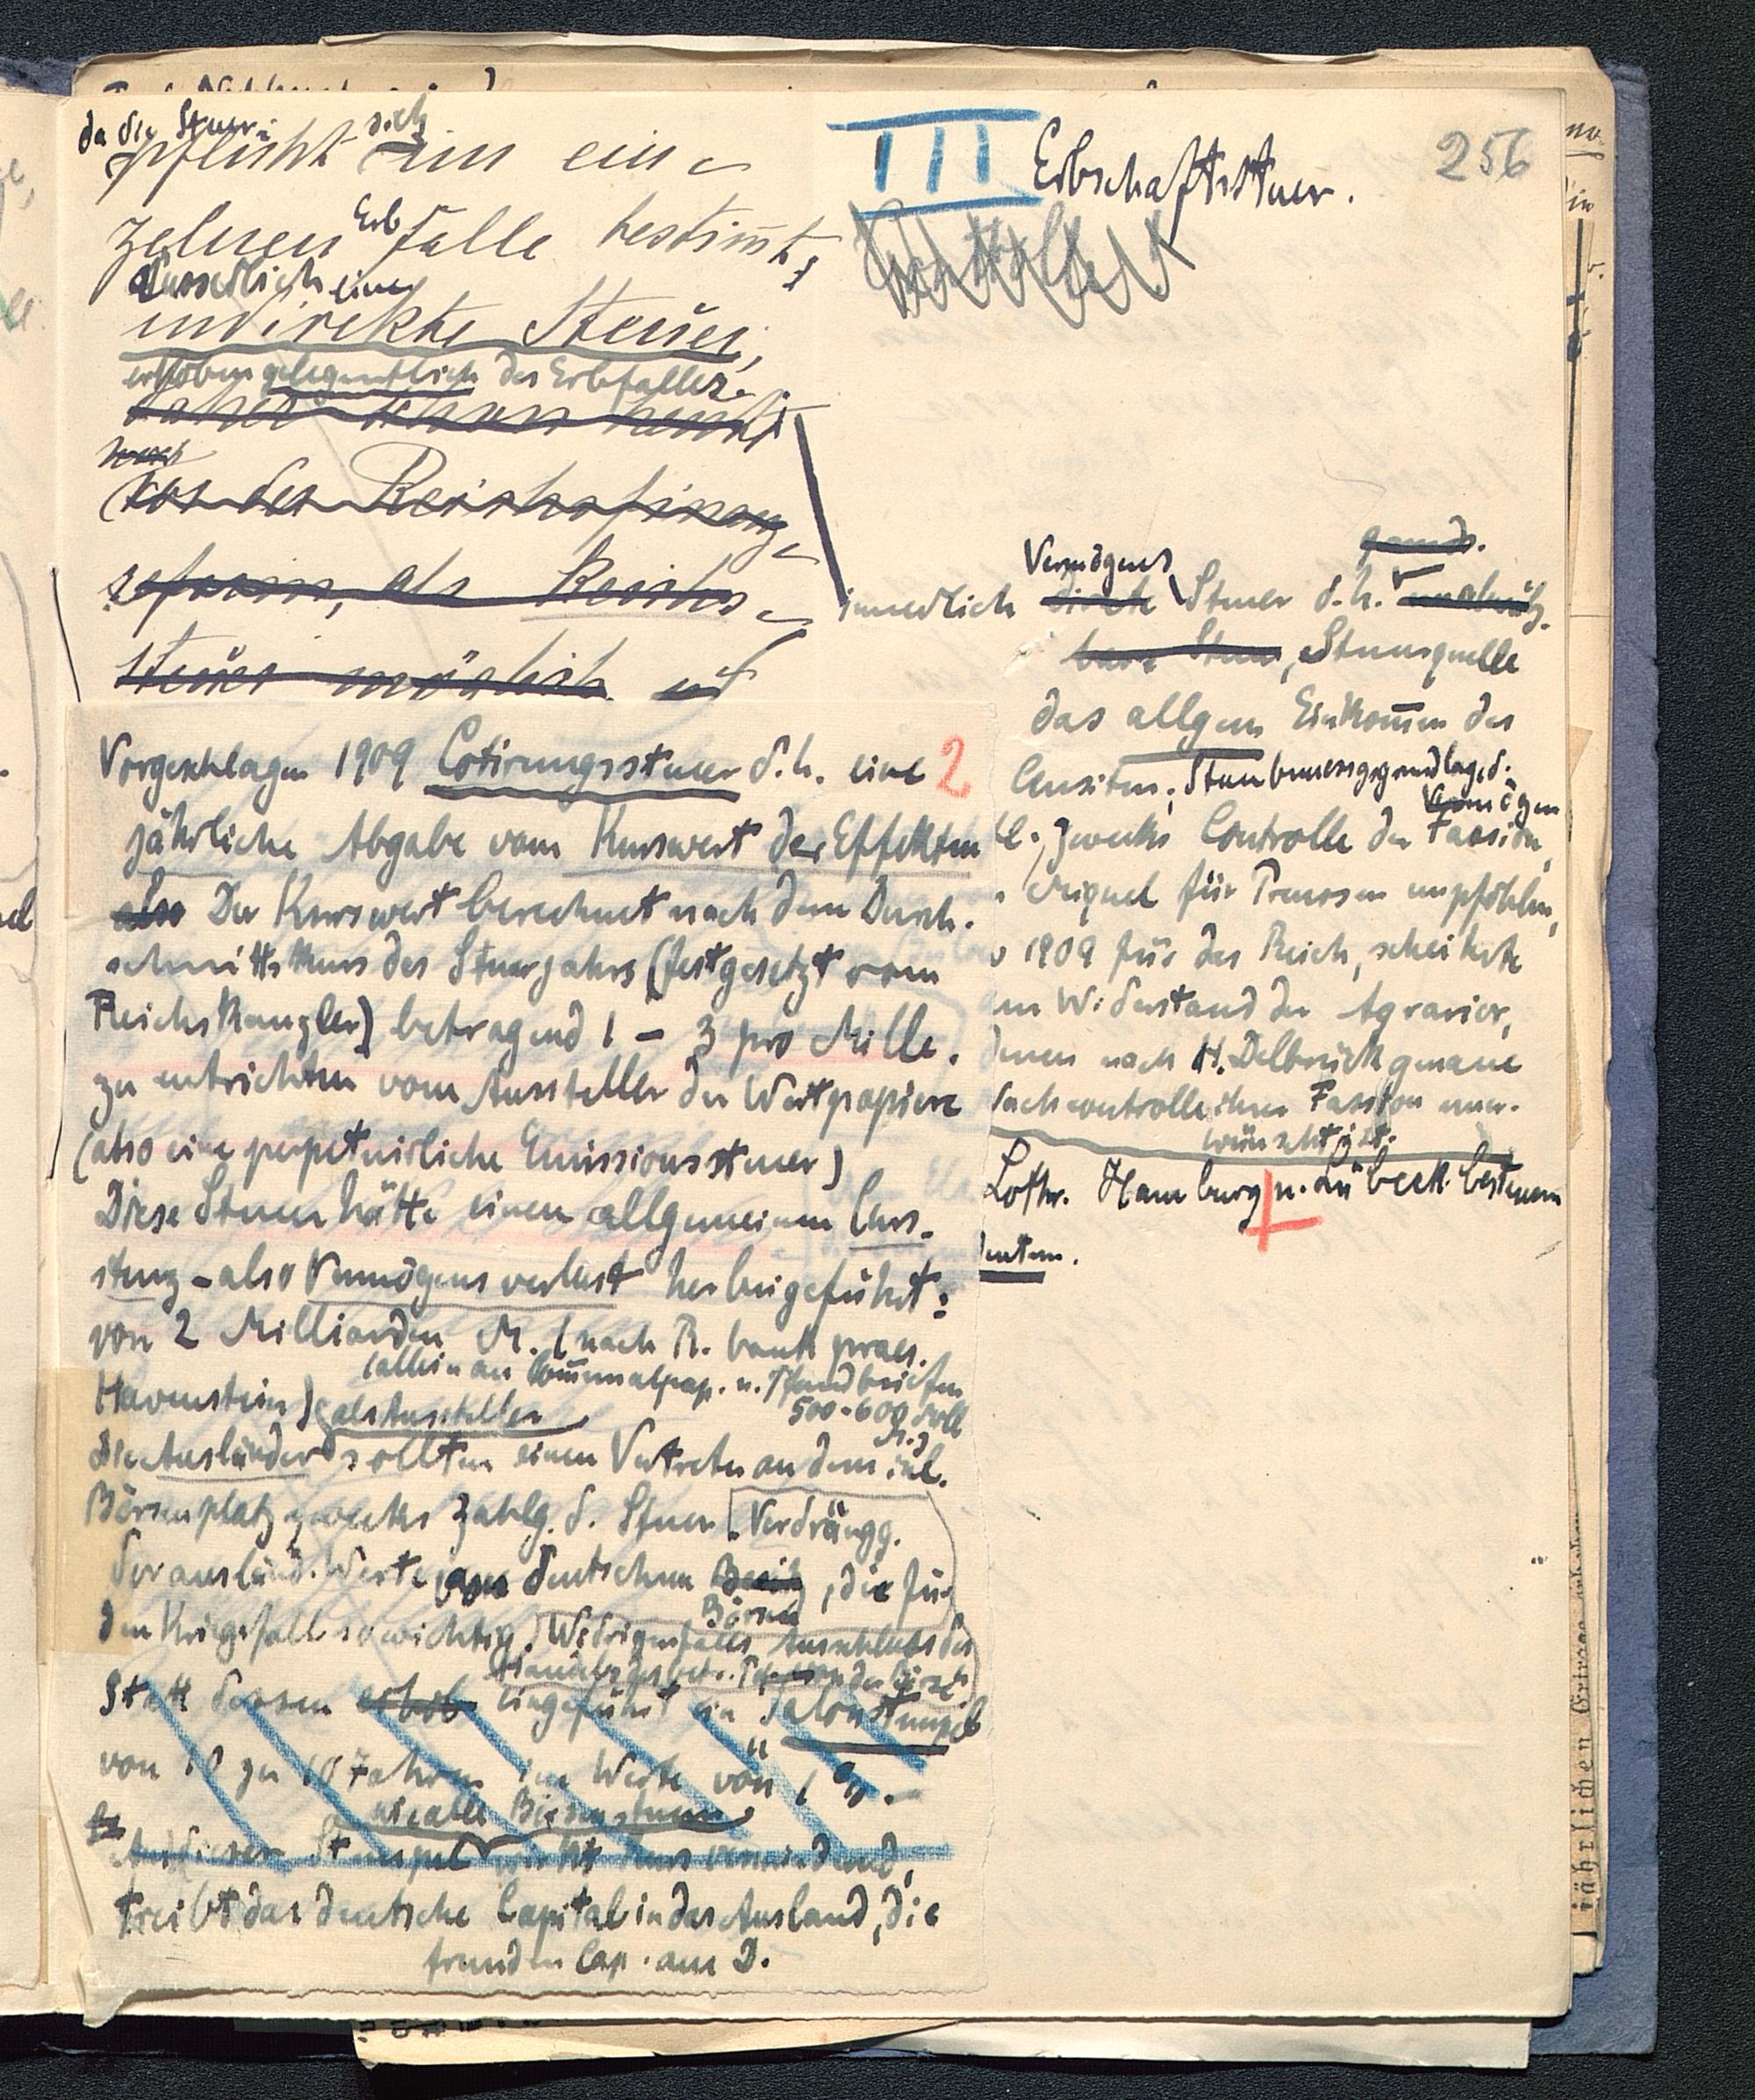 256
III Erbschaftssteuer.
da die Steuer-
pflicht sich im ein-
zelnen Erbfalle bestimt,
äusserlich eine
indirekte Steuer,
erhoben gelegentlich des Erbfalles.
daher schon
vor der Reichsfinanz-
reform, als Reichs-
steuer möglich
innerlich Vermögens Steuer d.h.
bare Steuer, Steuerquelle
das allgem Einkom̄en des
Censiten; Steuerbemessgsgrundlage d.
Vermögen
zwecks Controlle der Fassion,
Miquel für Preussen empfohlen,
1909 für das Reich, scheiterte
am Widerstand der Agrarier,
denen nach H. Delbrück genaue
Nachcontrolle ihrer Fassion uner-
wünscht ist.
Lothr. Hamburg u. Lübeck besteuern
Vorgeschlagen 1909 Cotirungssteuer d.h. eine 2
jährliche Abgabe vom Kurswert der Effekten
also Der Kurswert berechnet nach dem Durch-
schnittskurs des Steuerjahrs (festgesetzt vom
Reichskanzler) betragend 1 – 3 pro Mille.
zu entrichten vom Aussteller der Wertpapiere
(also eine perpetuirliche Emissionssteuer)
Diese Steuer hätte einen allgemeinen Curs-
sturz – also Vermögensverlust herbeigeführt:
von 2 Milliarden M. (nach R. bank praes.
(allein an Com̄unalpap. u. Pfandbriefen
500-600
Havenstein) als Aussteller
Die Ausländer sollten einen Vertreter an dem inl.
Börsenplatz zwecks Zahlg. d. Steuer [Verdrängg.
der ausländ. Werte deutschen Besitz, die für
Börsen
den Kriegsfall so wichtig.] Widrigenfalls Ausschluss des
Statt dessen erhob eingeführt ein Talonstempel
von 10 zu 10 Jahren im Werte von
wie alle Börsensteuern
Auch dieser Stempel wirkt kursvermindernd,
treibt das deutsche Capital in das Ausland, die
fremden Cap. aus D.
jährlichen